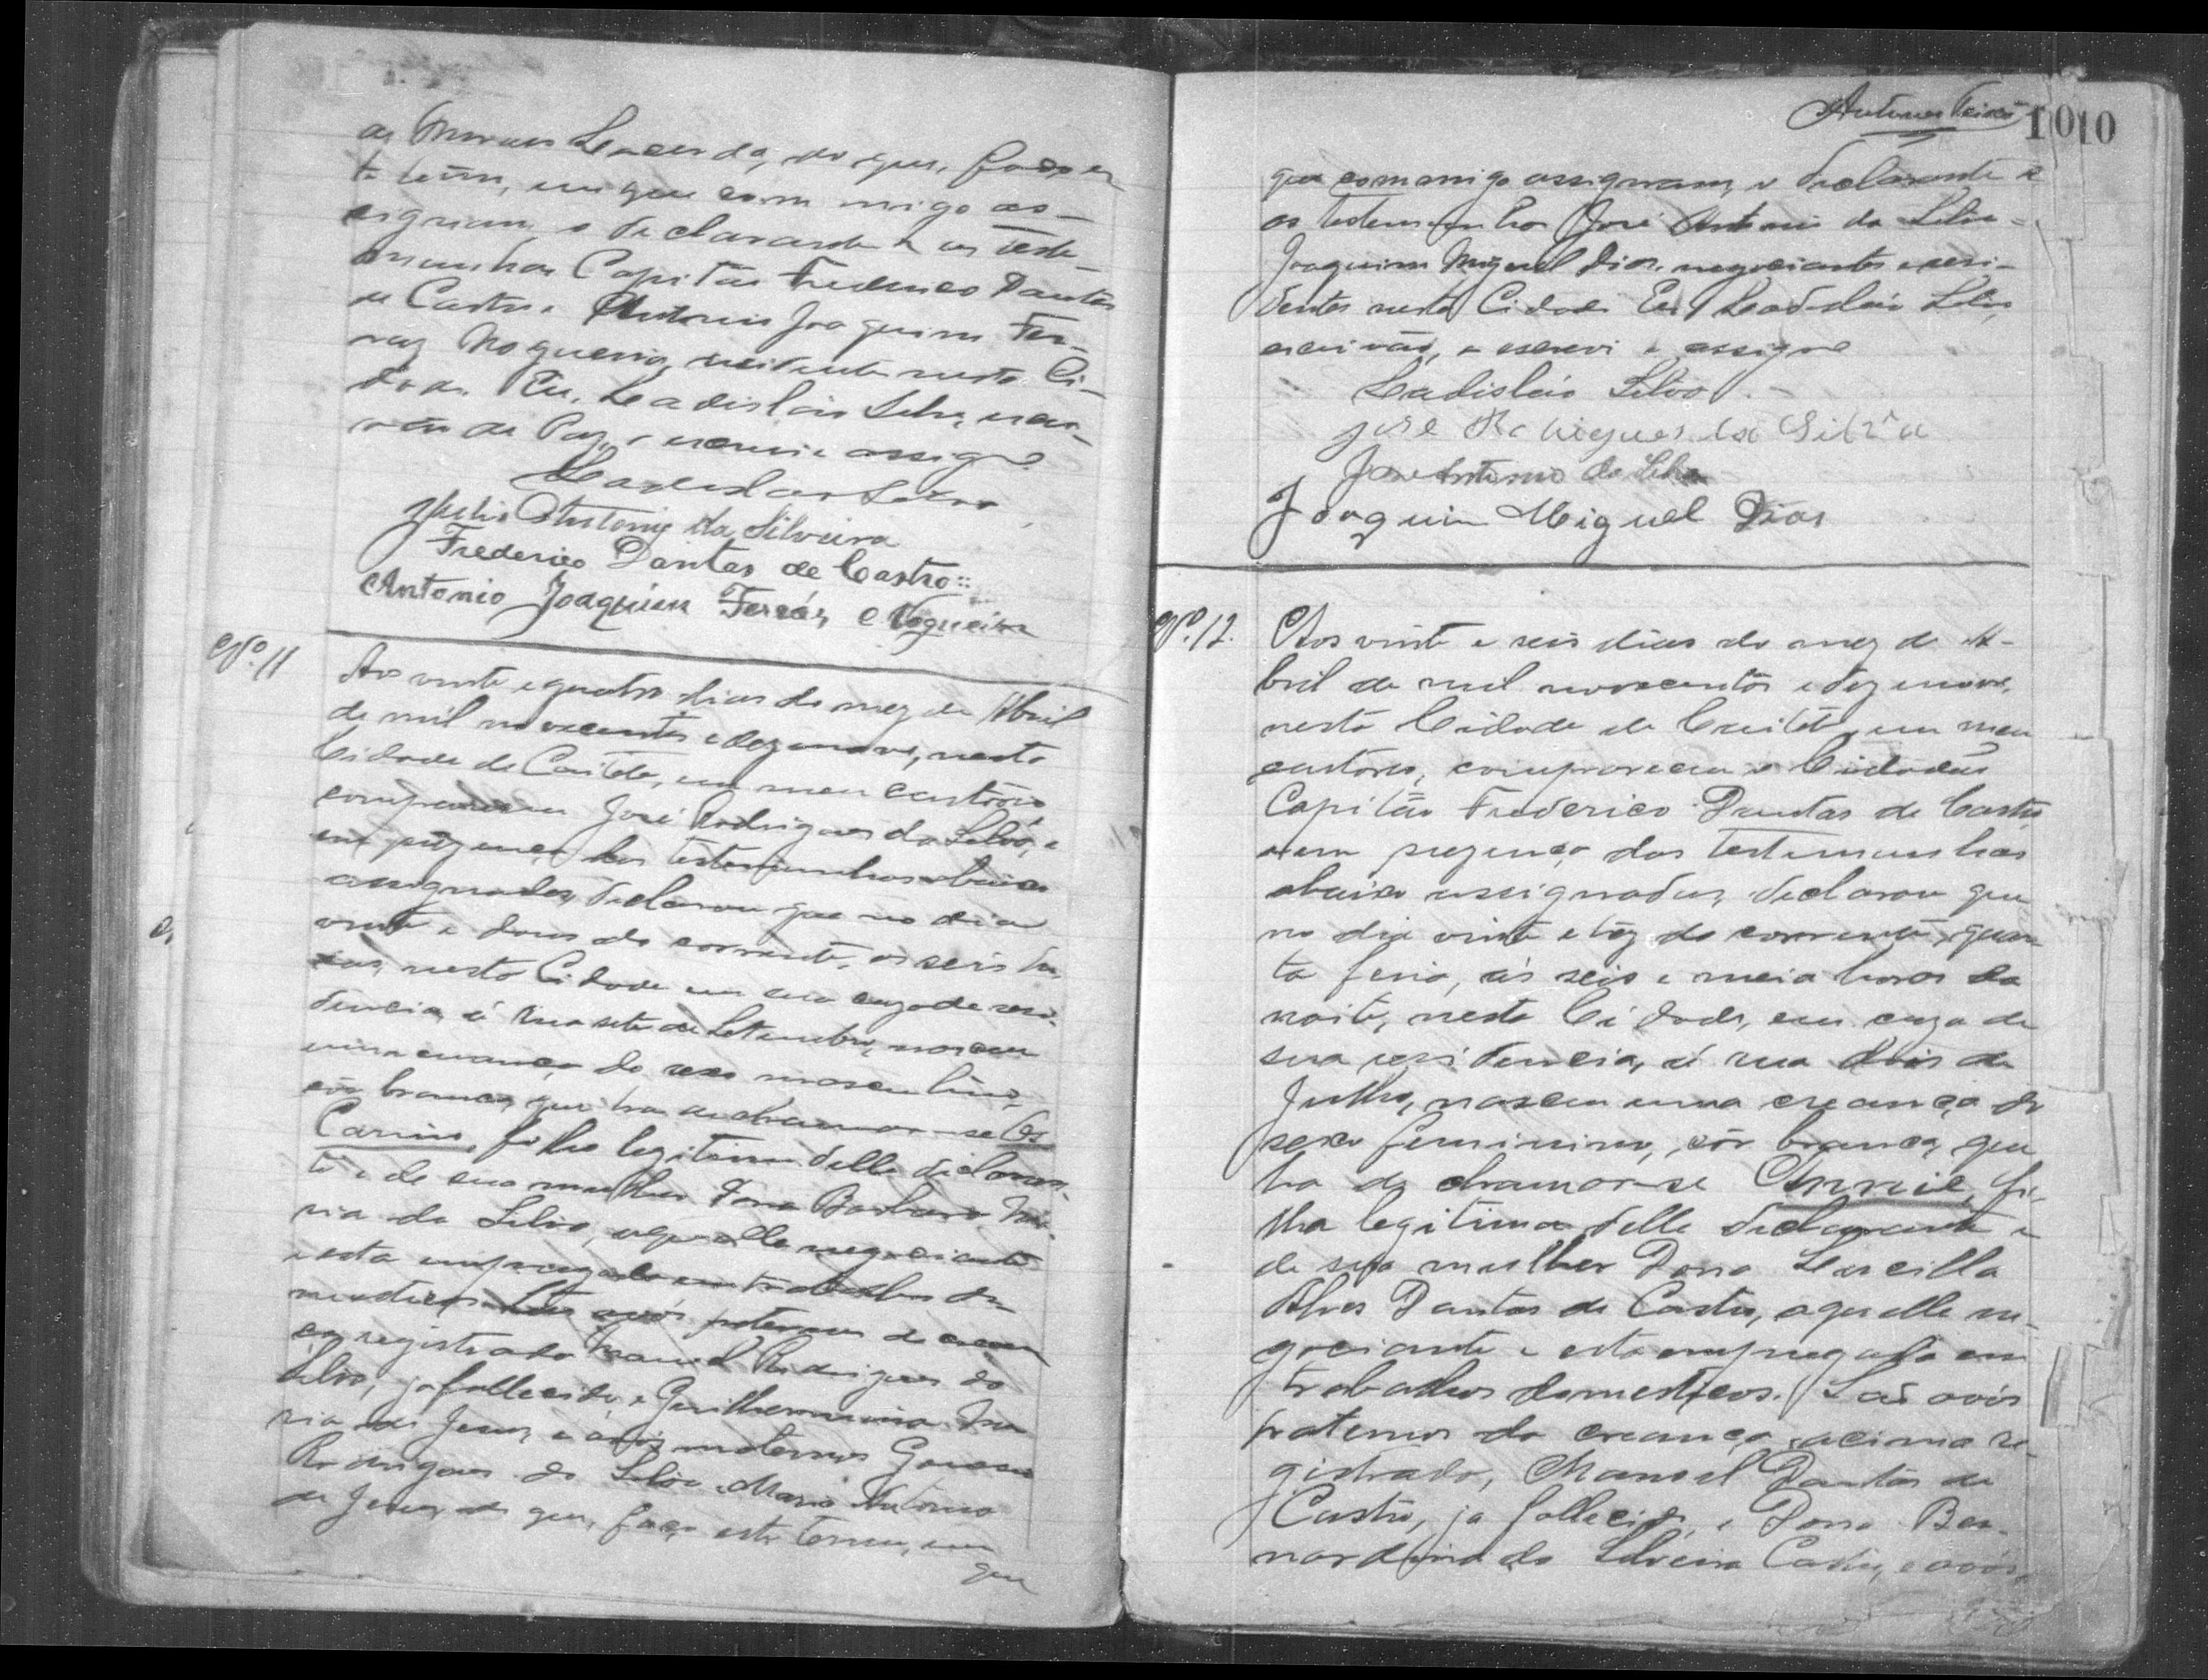 de Moraes Lacerda, do que, faço es-
te termo, em que com migo as-
signam, o declarante e as teste-
munhas Capitão Frederico Dantas
de Castro e Antonio Joaquim Fer-
raz Nogueira, residentes nesta Ci-
dade. Eu, Ladisláo Silva, escri-
vão de Paz, o escrevi e assigno
Ladislao Silva
Antonio da Silveira
Frederico Dantas de Castro::
Antonio Joaquim Ferraz Nogueira
Nº. 11
Aos vinte e quatro dias do mez de Abril
de mil novecentos e dezenove, nesta
Cidade de Caiteté, em meu cartorio,
compareceu José Rodrigues da Silva, e
em prezença das testemunhas abaixo
assignadas, declarou que no dia
vinte e dous do corrente, ás seis ho-
ras, nesta Cidade em sua caza de resi-
dencia, á rua sete de Setembro, nasceu
uma creança do sexo masculino,
côr branca, que ha de chamar-se
filho legitimo delle declaran-
te e de sua mulher Dona Barbara Ma-
ria da Silva, aquelle negociante
e esta empregada em trabalhos do-
mesticos. São avós paternos da crean-
ça registrada Manoel Rodrigues da
Silva, ja fallecido, e Guilhermina Ma-
ria de Jesus, e avós maternos
Rodrigues da Silva e Maria Antonia
de Jesus, do que, faço este termo, em
que
Antonio
1010
que commigo assignam, o declarante e
as testemunhas José Antonio da Silva e
Joaquim Miguel Dias, negociantes e resi-
dentes nesta Cidade Eu, Ladisláo Silva,
escrivão, o escrevi e assigno
Ladisláo Silva
José Rodrigues da Silva
José Antonio da Silva
Joaquim Miguel Dias
Nº. 12.
Aos vinte e seis dias do mez de A-
bril de mil novecentos e dezenove,
nesta Cidade de Caiteté, em meu
cartorio, compareceu o Cidadão
Capitão Frederico Dantas de Castro
e em prezença das testemunhas
abaixo assignadas, declarou que
no dia vinte e trez do corrente, quar-
ta feira, ás seis e meia horas da
noite, nesta Cidade, em caza de
sua residencia, á rua Dois de
Julho, nasceu uma creança do
sexo feminino, côr branca, que
ha de chamar-se Annie, fi-
lha legitima delle declarante e
de sua mulher Dona Lucilla
Alves Dantas de Castro, aquelle ne-
gociante e esta empregada em
trabalhos domesticos. São avós
paternos da creança acima re-
gistrada, Manoel Dantas de
Castro, ja fallecido, e Dona Ber-
nardina da Silveira Castro, e avós